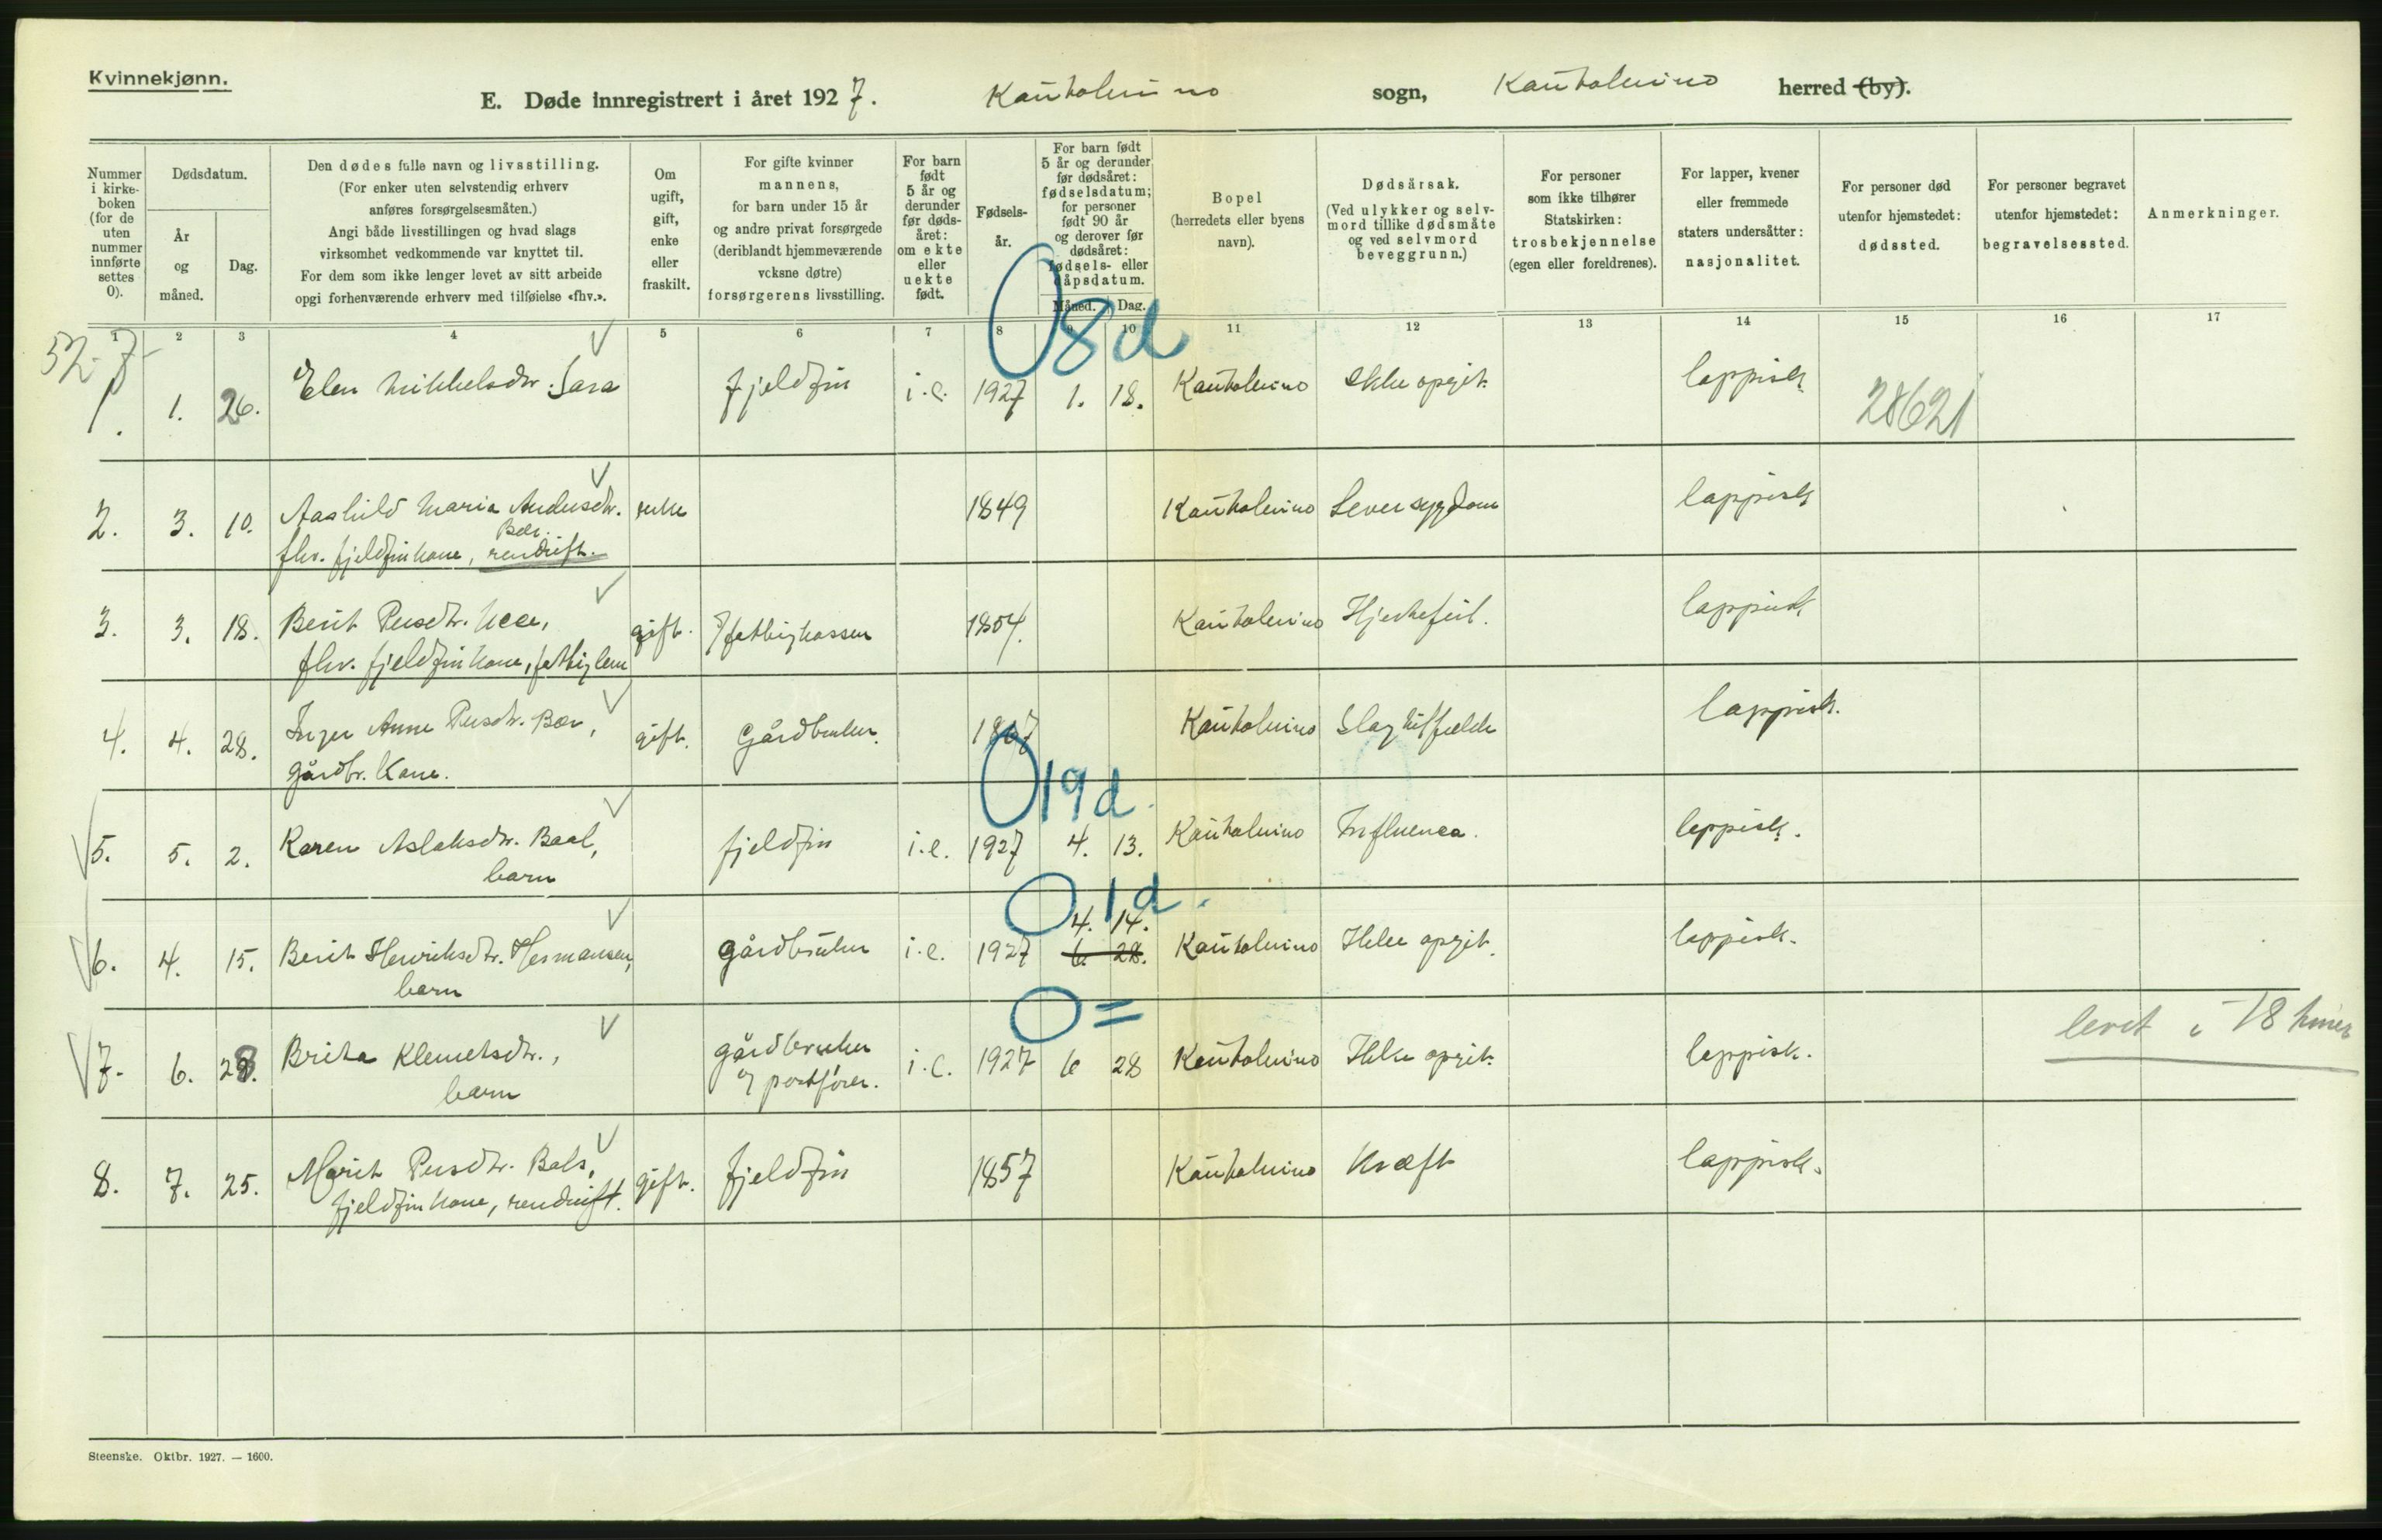 Kvinnekjønn.
E. Døde innregistrert i året 1927. Kautokeino sogn, Kautokeino herred (by).
Nummer i kirkeboken (for de uten nummer innførte settes 0).
Dødsdatum.
År og måned.
Dag.
Den dødes fulle navn og livsstilling.
(For enker uten selvstendig erhverv
anføres forsørgelsesmåten.)
Angi både livsstillingen og hvad slags
virksomhet vedkommende var knyttet til.
For dem som ikke lenger levet av sitt arbeide
opgi forhenværende erhverv med tilføielse «fhv.».
Om
ugift,
gift,
enke
eller
fraskilt.
For gifte kvinner
mannens,
for barn under 15 år
og andre privat forsørgede
(deriblandt hjemmeværende
vcksne døtre)
forsørgerens livsstilling.
For barn
født
5 år og
derunder
før døds-
året:
om ekte
eller
uekte
født.
Fødsels-
år.
For barn født
5 år og derunder
før dødsåret:
fødselsdatum;
for personer
født 90 år
og derover før
dødsåret:
fødsels- eller
dåpsdatum.
Måned. Dag.
Bopel
(herredets eller byens
navn).
Dødsårsak.
(Ved ulykker og selv-
mord tillike dødsmåte
og ved selvmord
beveggrunn.)
For personer
som ikke tilhører
Statskirken:
trosbekjennelse
(egen eller foreldrenes).
For lapper, kvener
eller fremmede
staters undersåtter:
nasjonalitet.
For personer død
utenfor hjemstedet:
dødssted.
For personer begravet
utenfor hjemstedet:
begravelsessted.
Anmerkninger.
1 2 3 4 5 6 7 8 9 10 11 12 13 14 15 16 17
0 8 d
1. 1. 26. Elen Mikkelsdtr. Sara fjeldfin i.e. 1927 1. 18. Kautokeino Ikke opgit lappisk 28621
2. 3. 10. Aashild Maria Andersdtr. enke 1849 Kautokeino Leversygdom lappisk
Bær.
fhv. fjeldfinkone, rendrift.
3. 3. 18. Berit Persdtr. Ucce, gift. fattigkassen 1854. Kautokeino Hjertefeil. lappisk
fhv. fjeldfinkone, fattiglem
4. 4. 28. Inger Anne Persdtr. Bær, gift. Gårdbruker. 1867 Kautokeino Slagtilfælde lappisk.
gårdbr. kone.
0 19 d.
5. 5. 2. Karen Aslaksdtr. Baal, fjeldfin i.e. 1927 4. 13. Kautokeino Influenca. lappisk.
barn
0 1 d.
4. 14.
6. 4. 15. Berit Henriksdtr. Hermansen, gårdbruker i.e. 1927 6. 28. Kautokeino Ikke opgit. lappisk.
barn
0 =
7. 6. 28. Brita Klemetsdtr., gårdbruker i.e. 1927 6 28 Kautokeino Ikke opgit. lappisk. levet i 18 timer
barn og postfører.
8. 7. 25. Marit Persdtr. Bals, gift. fjeldfin 1857 Kautokeino Kræft lappisk.
fjeldfinkone, rendrift.
Steenske. Oktbr. 1927. — 1600.